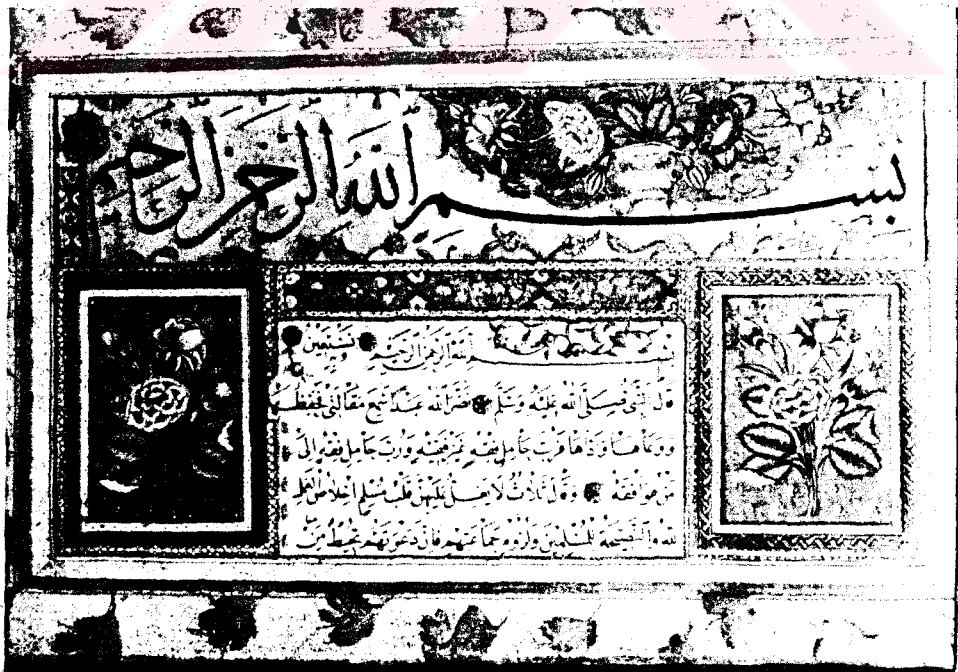 بسم الله الرحمن الرحيم
بسم الله الرحمن الرحيم وبه نستعين
قال النبي صلى الله عليه وسلم نضر الله عبدا سمع مقالتي فحفظها
ووعاها وادها فرب حامل فقه غير فقيه ورب حامل فقه الى
من هو افقه وقال ثلاث لا يغل عليهن قلب مسلم اخلاص العمل
لله والنصيحة للمسلمين ولزوم جماعتهم فان دعوتهم تحيط من